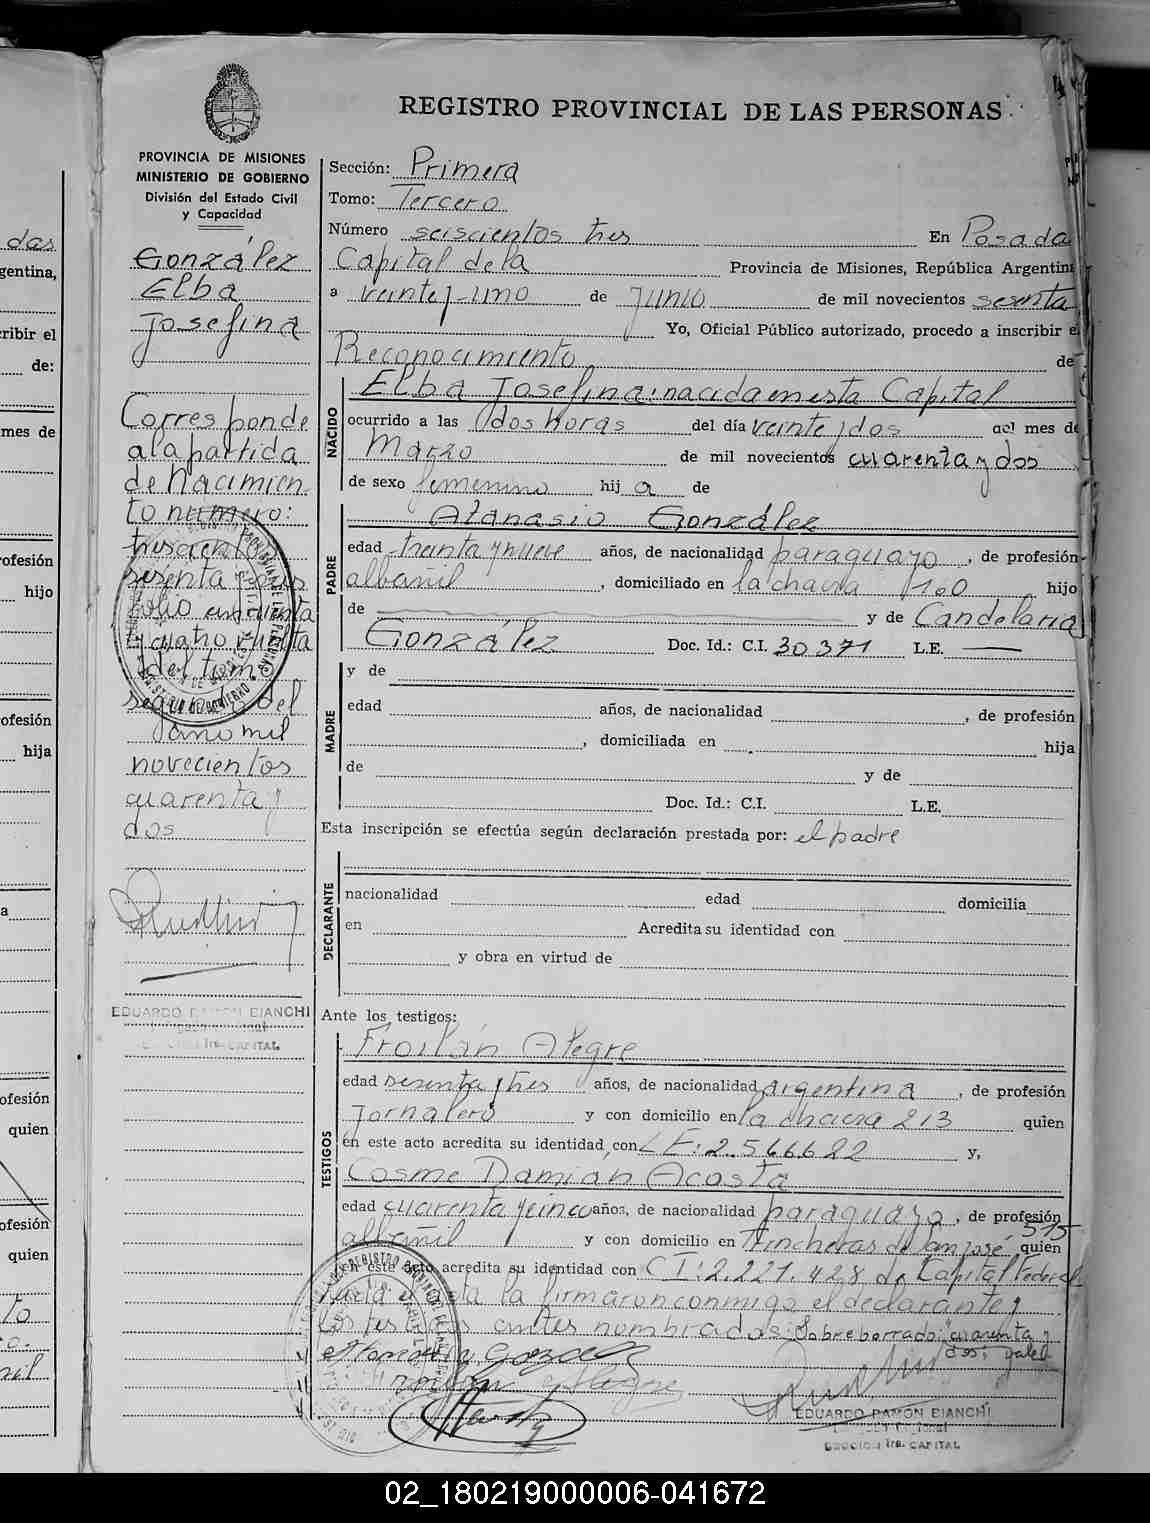 REGISTRO PROVINCIAL DE LAS PERSONAS
PROVINCIA DE MISIONES
MINISTERIO DE GOBIERNO
División del Estado Civil
y Capacidad
González
Elba
Josefina
Corresponde
a la partida
de Nacimien
to numero:
trescientos
sesenta y
folio cincuenta
y cuatro vuelta
del tomo
segundo del
año mil
novecientos
cuarenta y
dos
EDUARDO RAMÓN BIANCHI
1ra. CAPITAL
Sección: Primera
Tomo: Tercero
Número seiscientos tres En Posada
Capital de la Provincia de Misiones, República Argentin
a veinte y uno de Junio de mil novecientos sesenta
Yo, Oficial Público autorizado, procedo a inscribir e
Reconocimiento de
NACIDO
Elba Josefina: nacida en esta Capital
ocurrido a las dos horas del día veinte y dos del mes de
Marzo de mil novecientos cuarenta y dos
de sexo femenino hij a de
PADRE
Atanasio González
edad treinta y nueve años, de nacionalidad paraguayo, de profesión
albañil, domiciliado en la chacra 160 hijo
de y de Candelaria
González Doc. Id.: C.I. 30371 L.E.
MADRE
y de
edad años, de nacionalidad , de profesión
, domiciliada en hija
de y de
Doc. Id.: C.I. L.E.
Esta inscripción se efectúa según declaración prestada por: el padre
DECLARANTE
nacionalidad edad domicilia
en Acredita su identidad con
y obra en virtud de
Ante los testigos:
TESTIGOS
Froilán Alegre
edad sesenta y tres años, de nacionalidad argentina, de profesión
Jornalero y con domicilio en la chacra 213 quien
en este acto acredita su identidad con L E: 2.566.622 y,
Cosme Damian Acosta
edad cuarenta y cinco años, de nacionalidad paraguayo, de profesión
albañil y con domicilio en Trincheras de San José 515 quien
en este acto acredita su identidad con C I: 2.227.428 de Capital Federal
el acta la firmaron conmigo el declarante y
los testigos antes nombrados. Sobre borrado: "cuarenta y
dos: vale"
EDUARDO RAMÓN BIANCHI
SECCION 1ra. CAPITAL
das
gentina,
ribir el
de:
mes de
ofesión
hijo
ofesión
hija
a
ofesión
quien
ofesión
quien
to
02_180219000006-041672